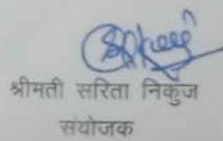 श्रीमती सरिता निकुंज
संयोजक